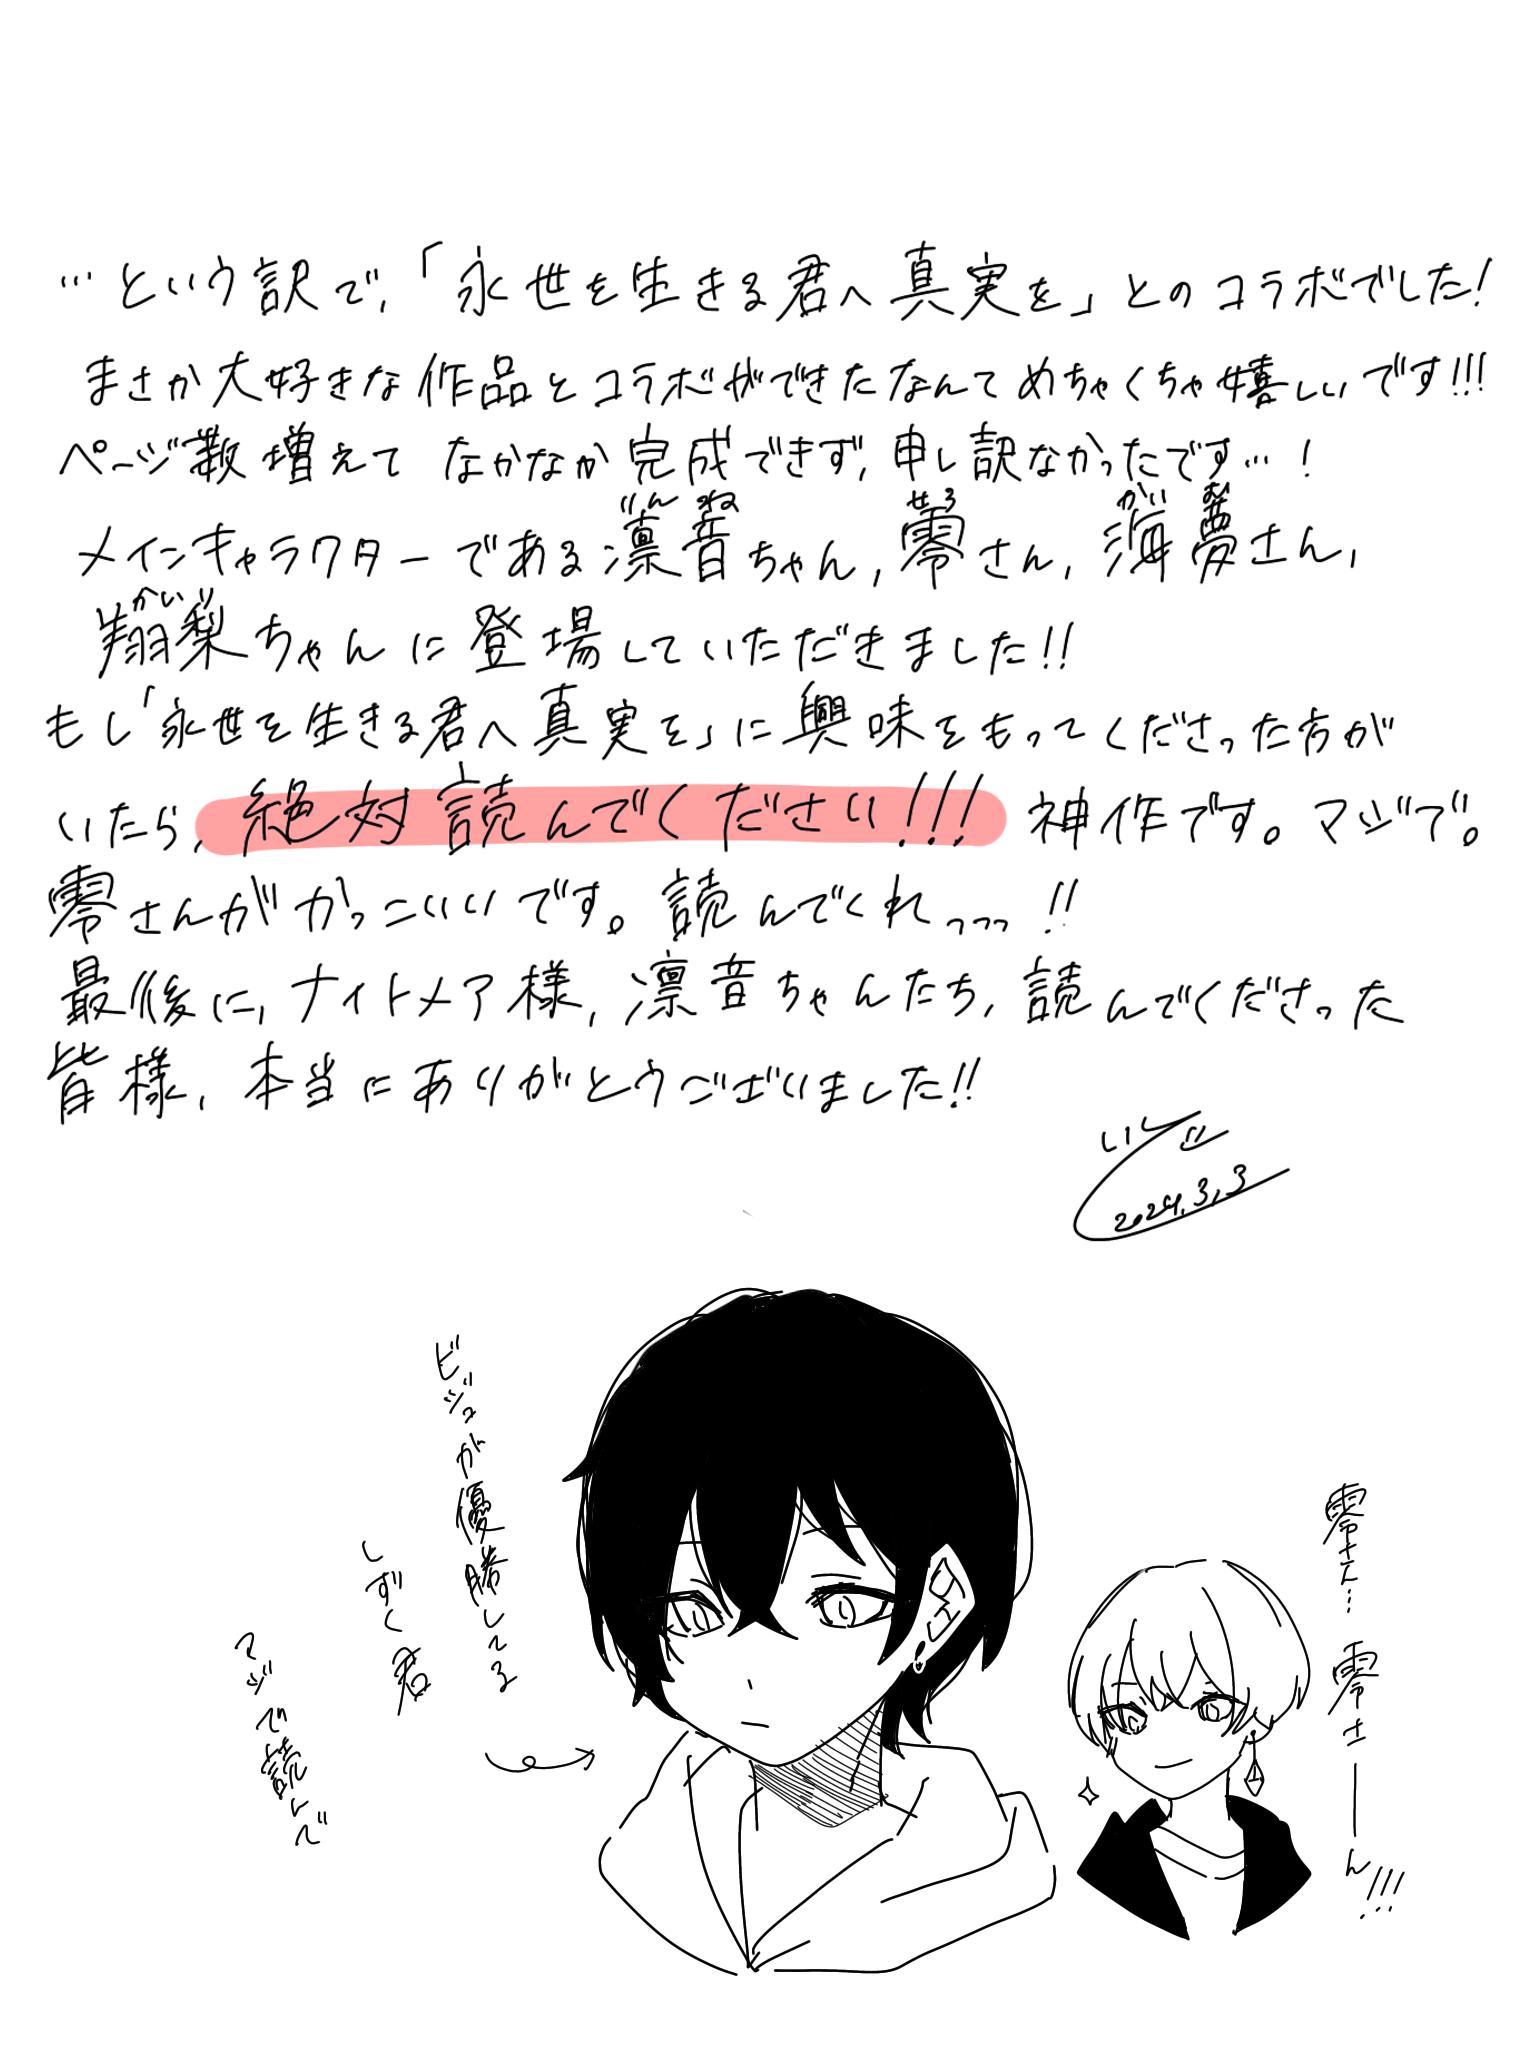 …という訳で、「永世を生きる君へ真実を」とのコラボでした!
まさか大好きな作品とコラボができたなんてめちゃくちゃ嬉しいです!!!
ページ数増えてなかなか完成できず、申し訳なかったです…!
メインキャラクターである凛音ちゃん、零さん、海夢さん、
りんね
せろ
かいむ
翔梨ちゃんに登場していただきました!!
かいり
もし「永世を生きる君へ真実を」に興味をもってくださった方が
いたら、絶対読んでください!!! 神作です。マジで。
零さんがかっこいいです。読んでくれっっっ!!
最後に、ナイトメア様、凛音ちゃんたち、読んでくださった
皆様、本当にありがとうございました!!
2024.3.3
ビジュが優勝してる
しずく君
マジで読んで
零さん… 零さーーん!!!